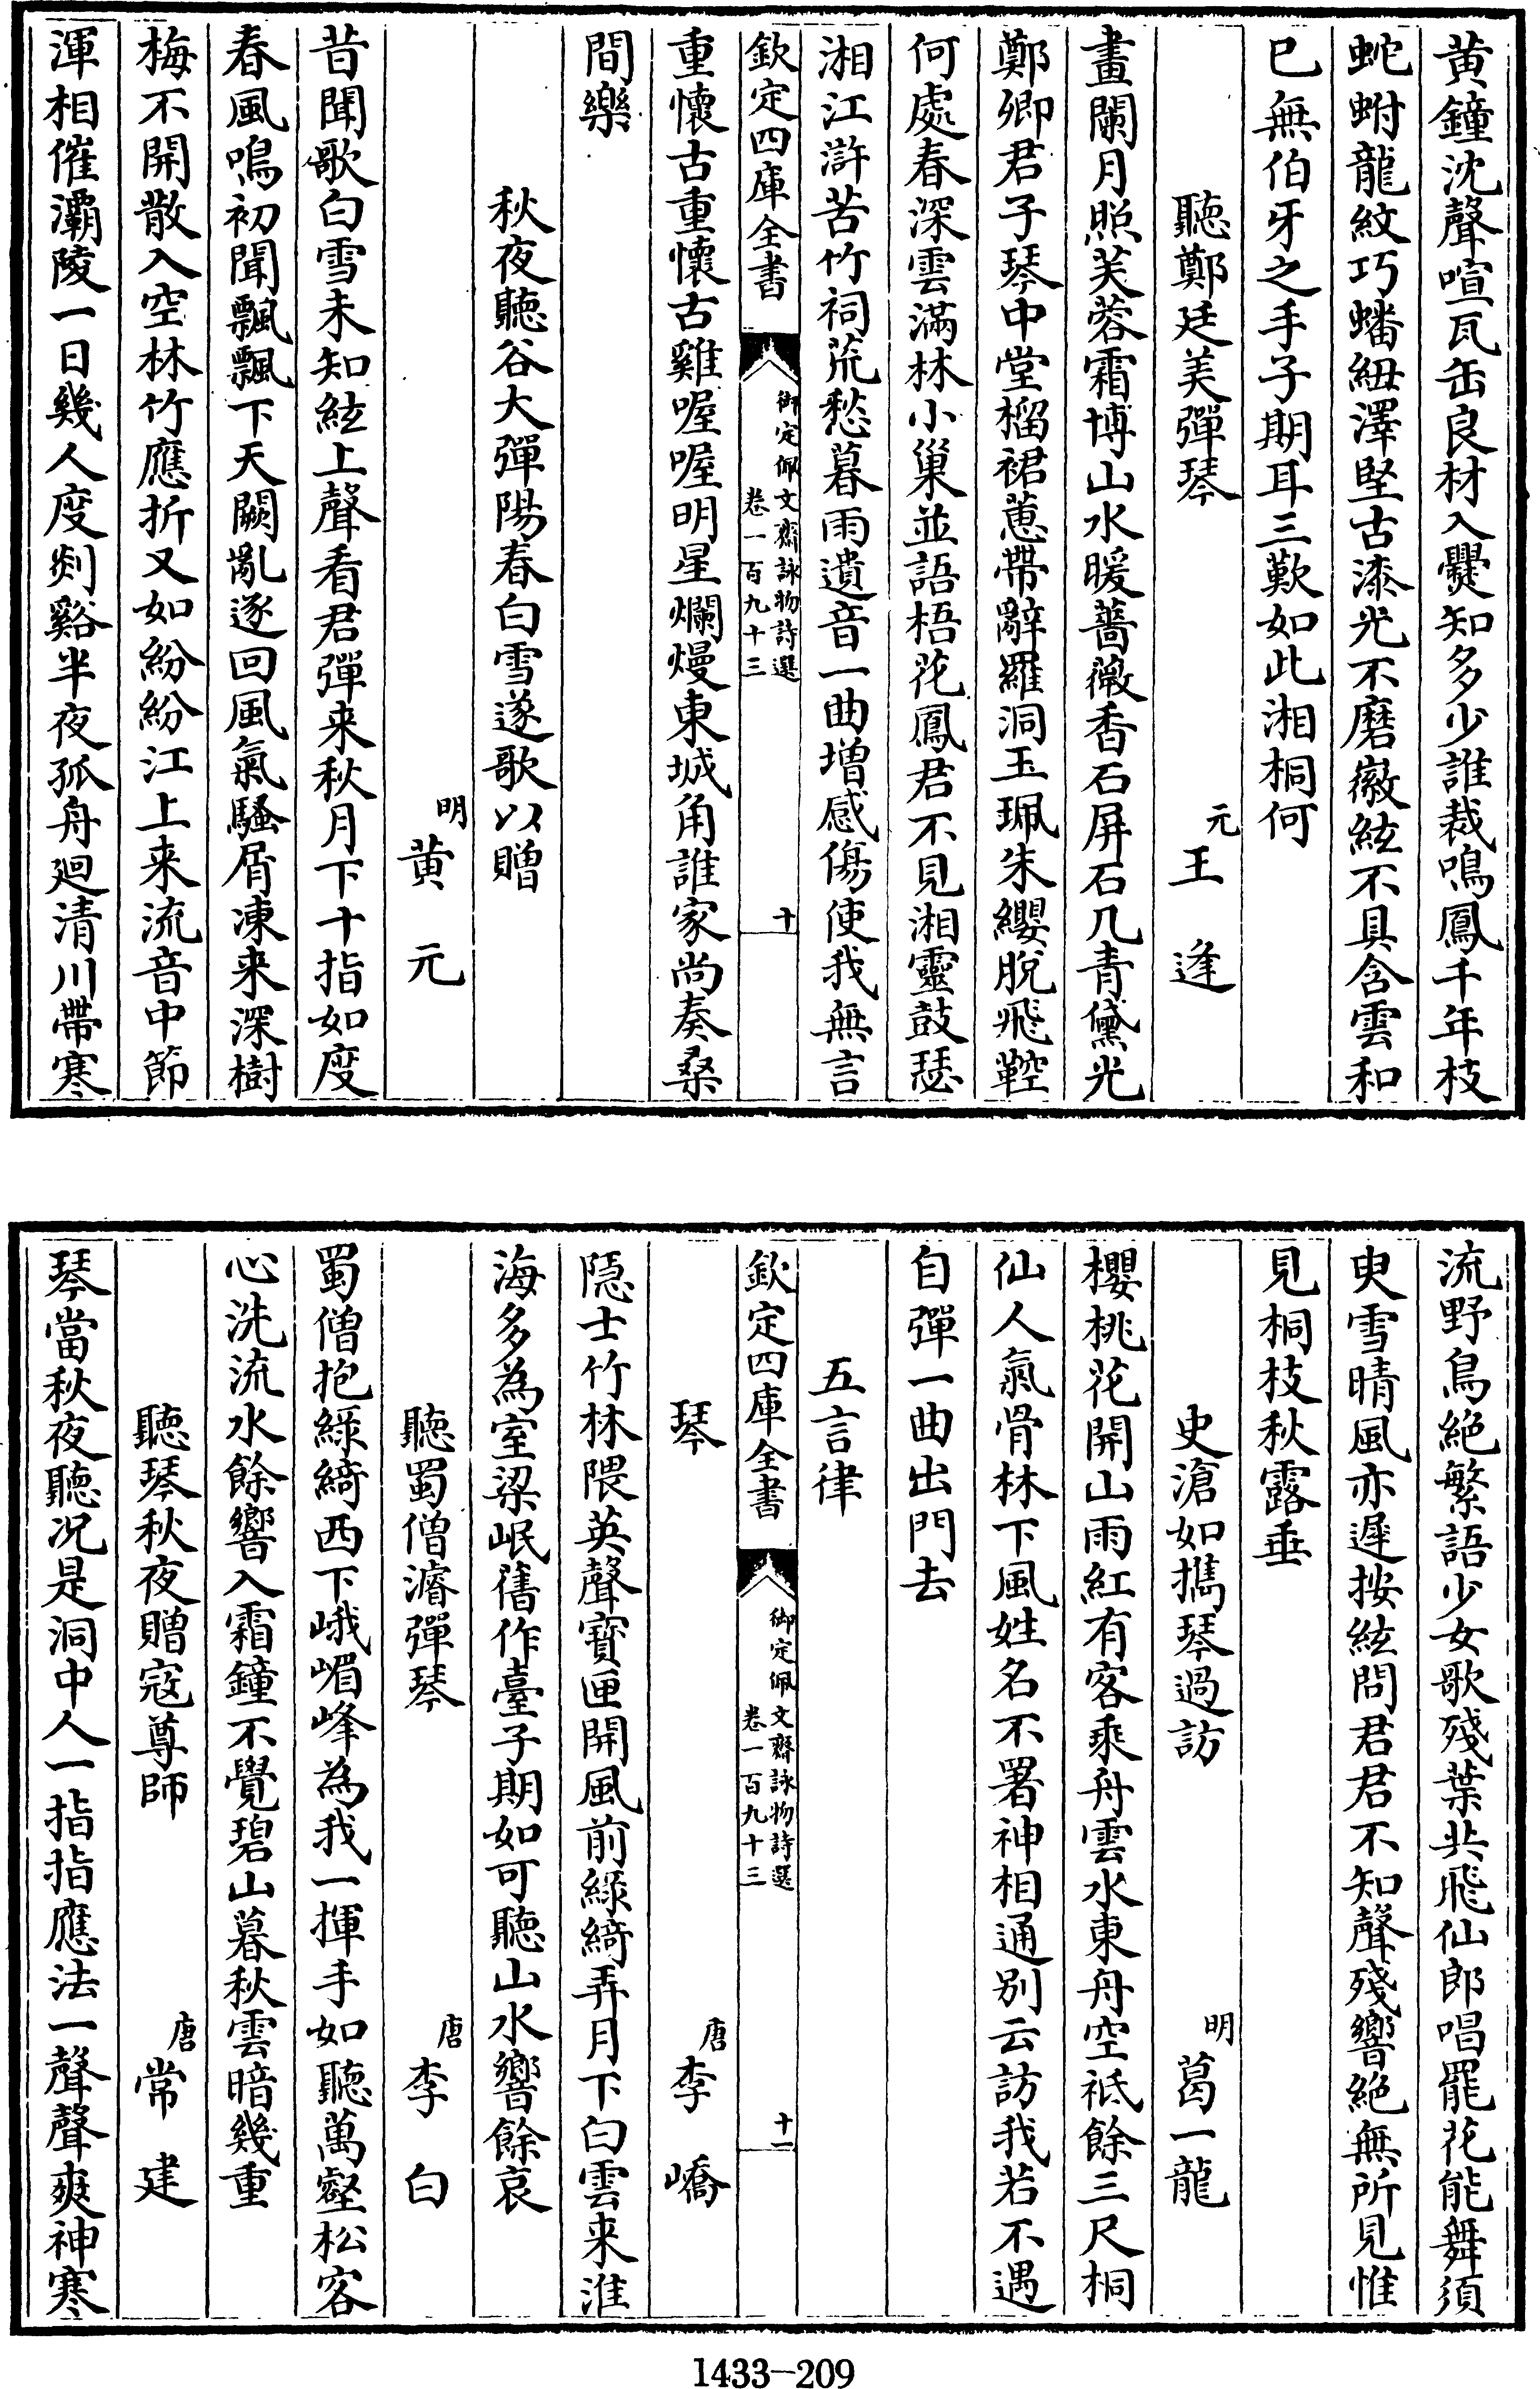 黄鐘沈聲喧瓦缶良材入爨知多少誰裁鳴鳳千年枝
蛇蚹龍紋巧蟠紐澤堅古漆光不磨徽絃不具含雲和
巳無伯牙之手子期耳三歎如此湘桐何
聽鄭廷美彈琴
元
王逢
畫闌月照芙蓉霜博山水暖薔薇香石屏石几青黛光
鄭卿君子琴中堂榴裙蕙帶辭羅洞玉珮朱纓脫飛鞚
何處春深雲滿林小巢並語梧花鳳君不見湘靈鼓瑟
湘江滸苦竹祠荒愁暮雨遺音一曲増感傷使我無言
欽定四庫全書
御定佩文齋詠物詩選
卷一百九十三
十
重懷古重懷古雞喔喔明星爛熳東城角誰家尚奏桑
間樂
秋夜聽谷大彈陽春白雪遂歌以贈
明
黄元
昔聞歌白雪未知絃上聲看君彈来秋月下十指如度
春風鳴初聞飄飄下天闕亂逐回風氣騷屑凍来深樹
梅不開散入空林竹應折又如紛紛江上来流音中節
渾相催灞陵一日幾人度剡谿半夜孤舟廻清川帶寒
流野鳥絶繁語少女歌殘葉共飛仙郎唱罷花能舞須
臾雪晴風亦遲按絃問君君不知聲殘響絶無所見惟
見桐枝秋露垂
史滄如攜琴過訪
明
葛一龍
櫻桃花開山雨紅有客乘舟雲水東舟空祗餘三尺桐
仙人氣骨林下風姓名不署神相通别云訪我若不遇
自彈一曲出門去
五言律
欽定四庫全書
御定佩文齋詠物詩選
卷一百九十三
十一
琴
唐
李嶠
隠士竹林隈英聲寳匣開風前緑綺弄月下白雲来淮
海多為室梁岷舊作臺子期如可聽山水響餘哀
聽蜀僧濬彈琴
唐
李白
蜀僧抱緑綺西下峨嵋峰為我一揮手如聽萬壑松客
心洗流水餘響入霜鐘不覺碧山暮秋雲暗幾重
聽琴秋夜贈寇尊師
唐
常建
琴當秋夜聽况是洞中人一指指應法一聲聲爽神寒
1433-209